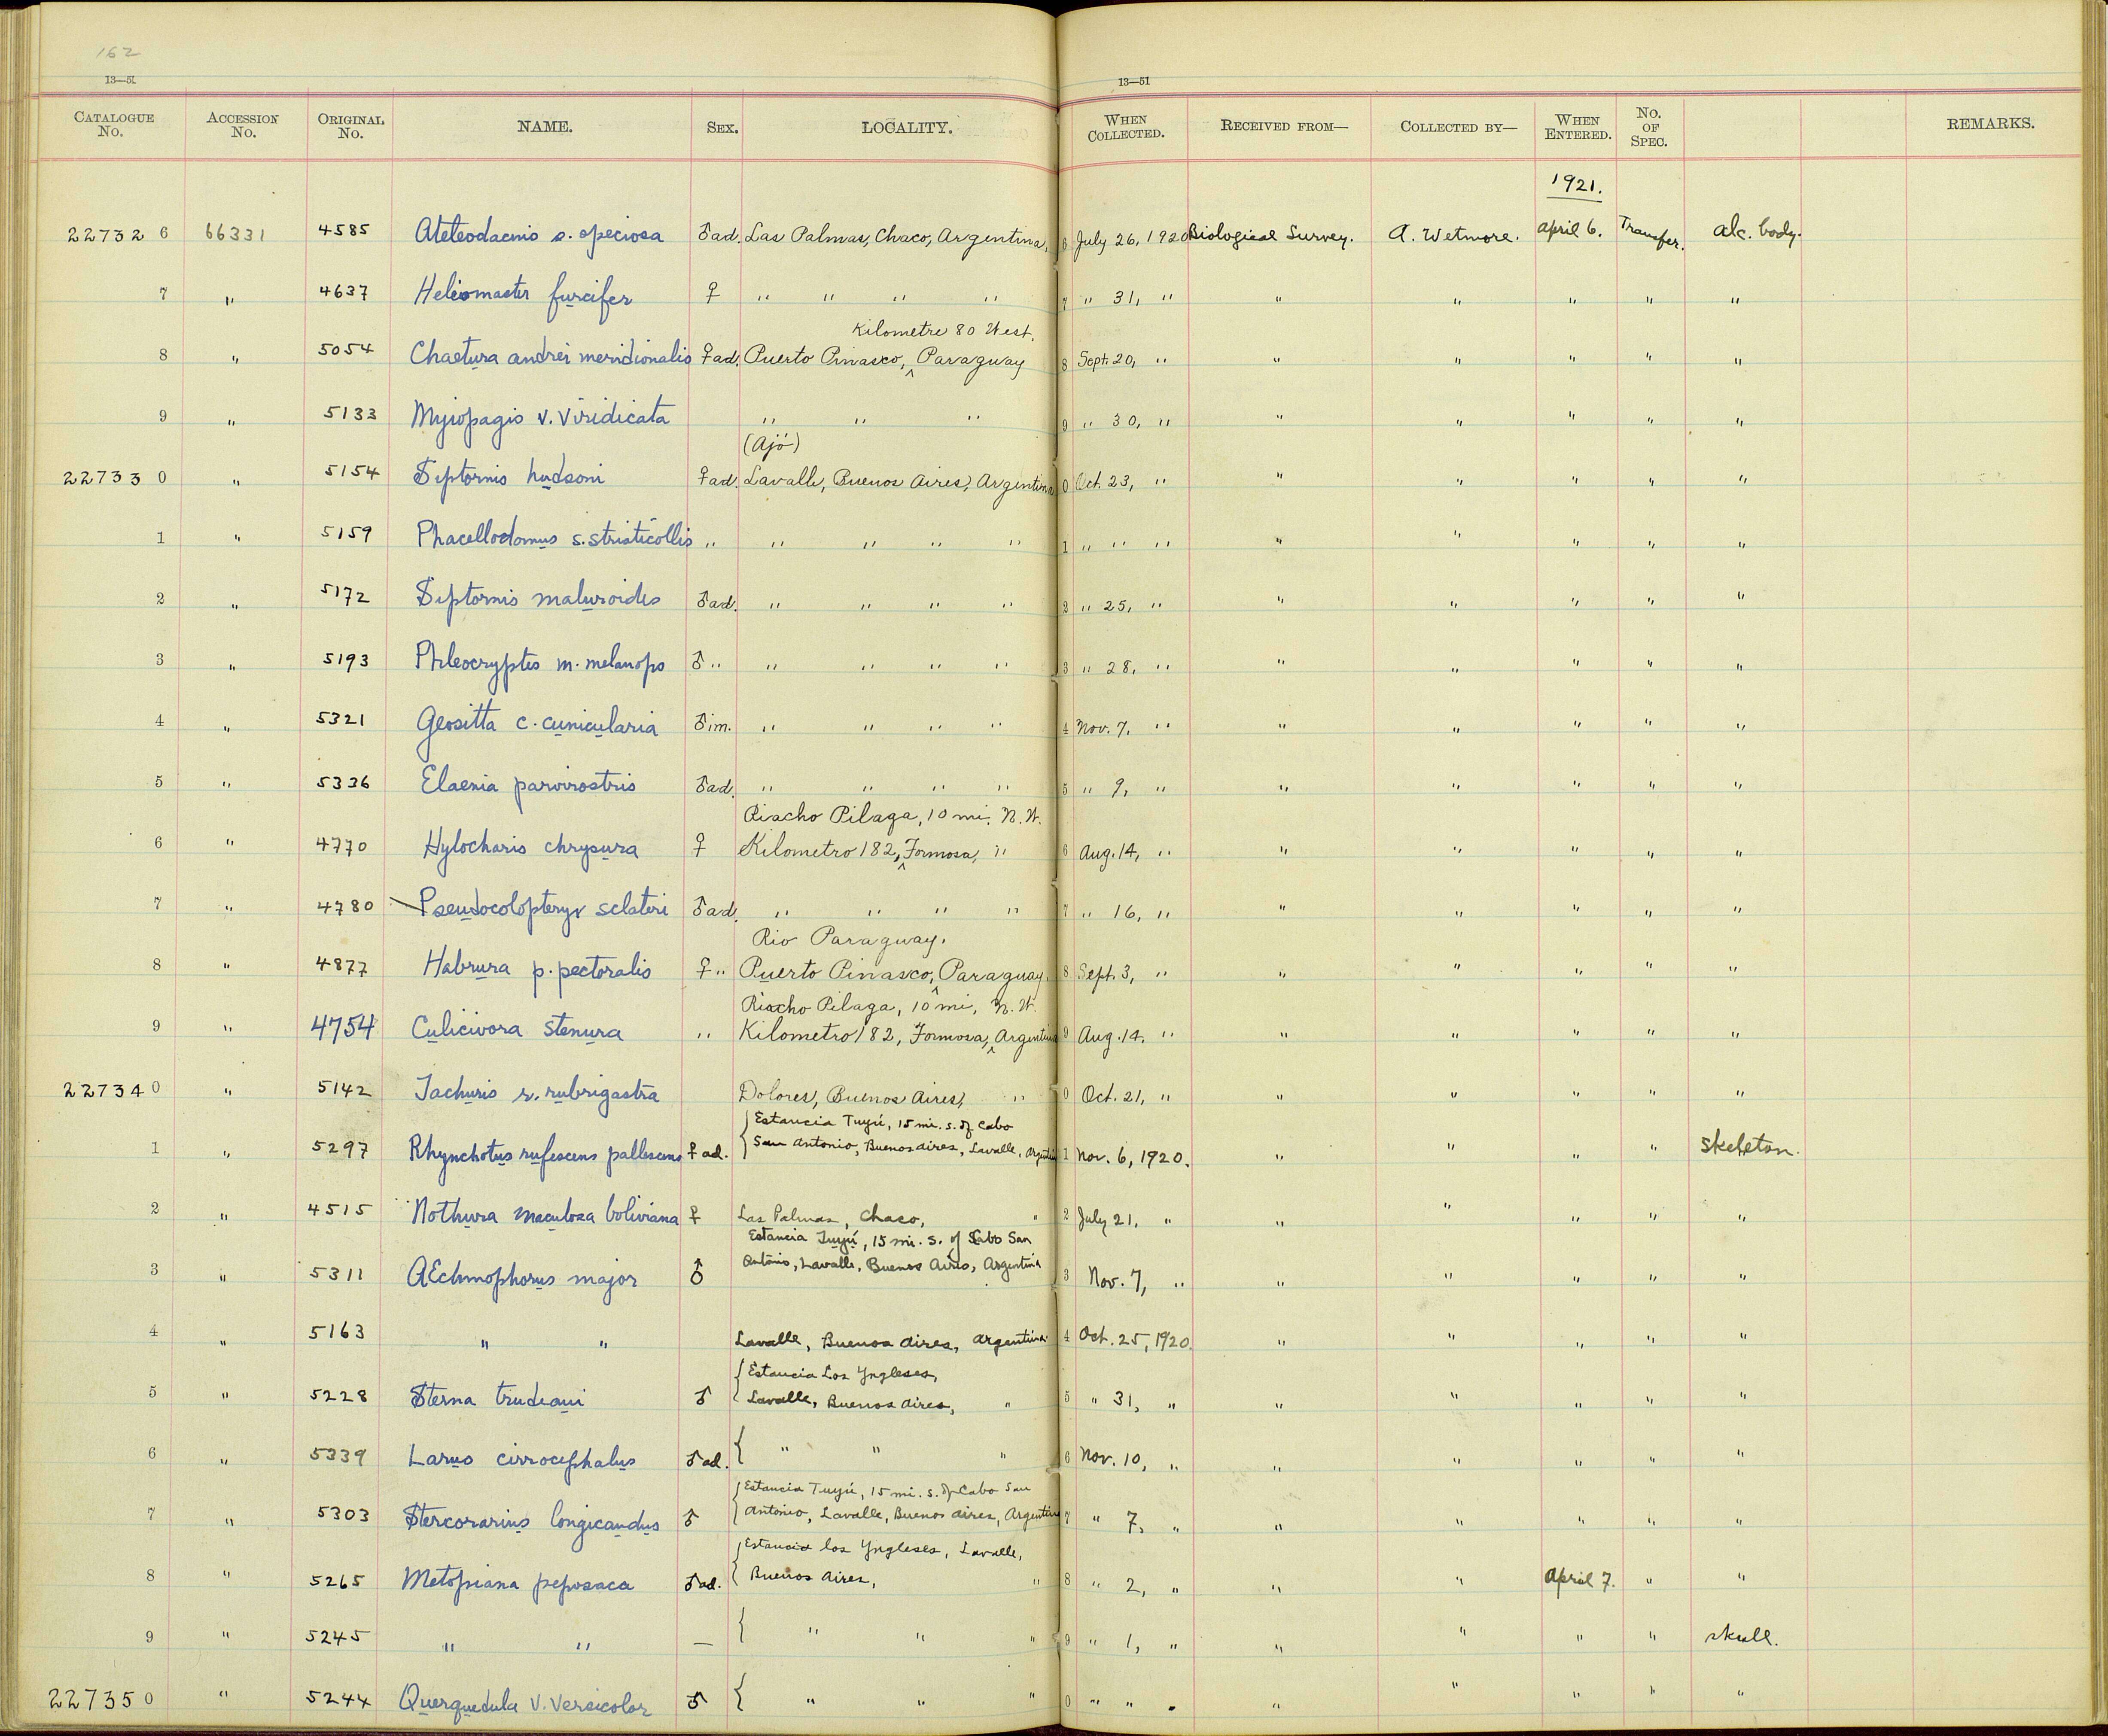 162
13—51
13—51
CATALOGUE No. ACCESSION No. ORIGINAL No. NAME. SEX. LOCALITY. WHEN COLLECTED. RECEIVED FROM— COLLECTED BY— WHEN ENTERED. NO. OF SPEC. REMARKS.
1921.
227326 66331 4585 Ateleodacnis s. speciosa ♂ad. Las Palmas, Chaco, Argentina, 6 July 26, 1920 Biological Survey. A. Wetmore. April 6. Transfer. alc. body.
7 " 4637 Heliomaster furcifer ♀ " " " " 7 " 31, " " " " " "
Kilometre 80 West.
8 " 5054 Chaetura andrei meridionalis ♀ad. Puerto Pinasco, ^ Paraguay 8 Sept. 20, " " " " " "
9 " 5133 Myiopagis v. viridicata " " " 9 " 30, " " " " " "
(Ajó)
227330 " 5154 Siptornis hudsoni ♀ad. Lavalle, Buenos Aires, Argentina 0 Oct. 23, " " " " " "
1 " 5159 Phacellodomus s. striaticollis " " " " " 1 " " " " " " " "
2 " 5172 Siptornis maluroides ♂ad. " " " " 2 " 25, " " " " " "
3 " 5193 Phleocryptes m. melanops ♂ " " " " " 3 " 28, " " " " " "
4 " 5321 Geositta c. cunicularia ♂im. " " " " 4 Nov. 7, " " " " " "
5 " 5336 Elaenia parvirostris ♂ad. " " " " 5 " 9, " " " " " "
Riacho Pilaga, 10 mi. N.W.
6 " 4770 Hylocharis chrysura ♀ Kilometro 182, ^ Formosa, " 6 Aug. 14, " " " " " "
7 " 4780 Pseudocolopteryx sclateri ♂ad. " " " " 7 " 16, " " " " " "
Rio Paraguay.
8 " 4877 Habrura p. pectoralis ♀ " Puerto Pinasco, ^ Paraguay. 8 Sept. 3, " " " " " "
Riacho Pilaga, 10 mi, N.W.
9 " 4754 Culicivora stenura " Kilometro 182, Formosa, ^ Argentina 9 Aug. 14. " " " " " "
227340 " 5142 Tachuris r. rubrigastra Dolores, Buenos Aires, " 0 Oct. 21, " " " " " "
Estancia Tuyú, 15 mi. s. of Cabo
1 " 5297 Rhynchotus rufescens pallescens ♀ ad. San Antonio, Buenos Aires, Lavalle, Argentina 1 Nov. 6, 1920. " " " " skeleton.
2 " 4515 Nothura maculosa boliviana ♀ Las Palmas, Chaco, " 2 July 21, " " " " " "
Estancia Tuyú, 15 mi. S. of Cabo San
3 " 5311 AEchmophorus major ♂ Antonio, Lavalle, Buenos Aires, Argentina 3 Nov. 7, " " " " " "
4 " 5163 " " Lavalle, Buenos Aires, Argentina 4 Oct. 25, 1920. " " " " "
Estancia Los Yngleses,
5 " 5228 Sterna trudeaui ♂ Lavalle, Buenos Aires, " 5 " 31, " " " " " "
6 " 5339 Larus cirrocephalus ♂ad. { " " " 6 Nov. 10, " " " " " "
Estancia Tuyú, 15 mi. s. of Cabo San
7 " 5303 Stercorarius longicaudus ♂ Antonio, Lavalle, Buenos Aires, Argentina 7 " 7, " " " " " "
Estancia los Yngleses, Lavalle,
8 " 5265 Metopiana peposaca ♂ad. Buenos Aires, " 8 " 2, " " " April 7. " "
9 " 5245 " " — { " " " 9 " 1, " " " " " skull.
227350 " 5244 Querquedula v. versicolor ♂ { " " " 0 " " " " " " " "